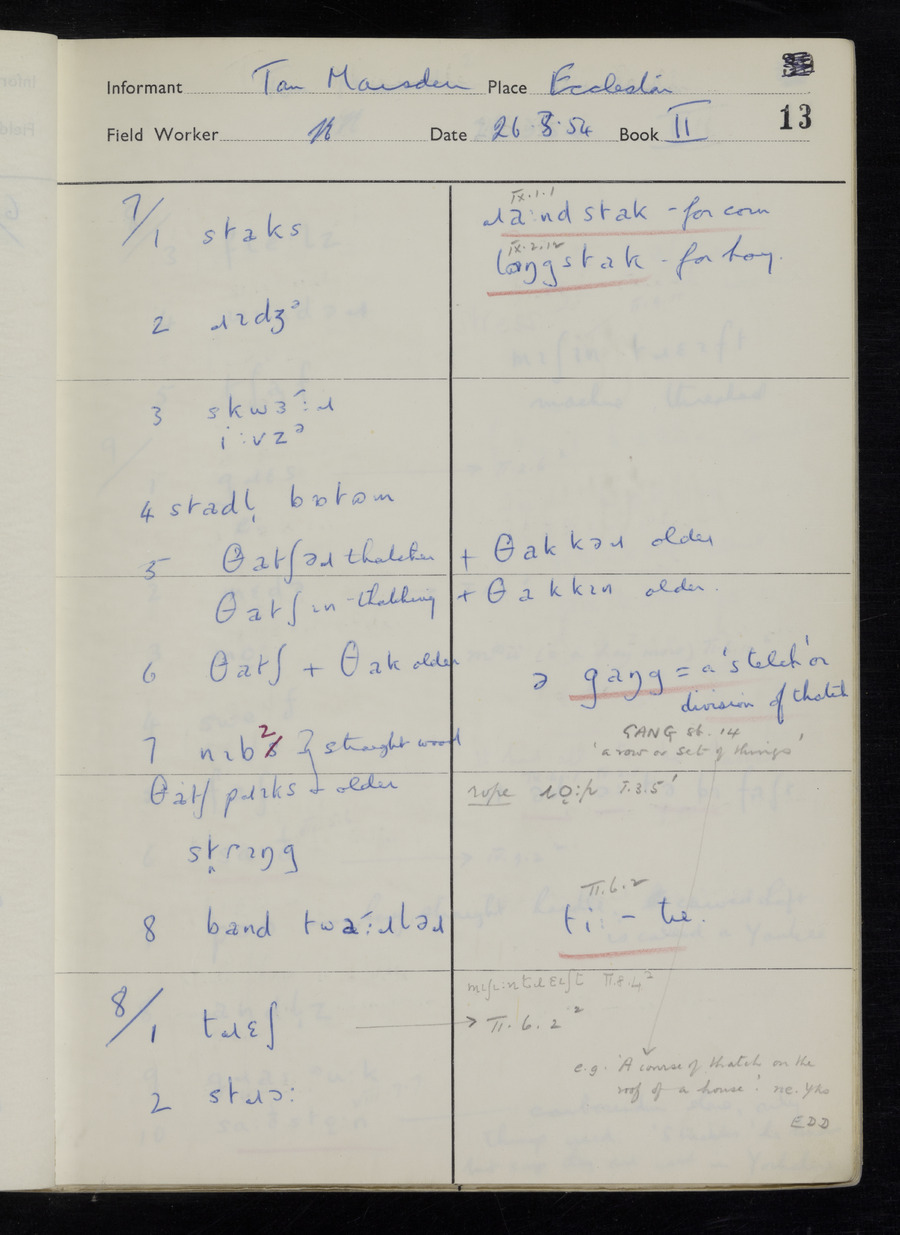 Informant Tom Marsden Place Eccleston
13
Field Worker Date 26.8.54 Book II
7/1 staks
IX.1.1
ɹa:nd stak - for corn
IX.2.12
laŋgstak - for hay.
2 ɹɪdʒᵊ
3 skwɜ´:ɹ
i:vzᵊ
4 stadl̩ bɒtɒm
5 θatʃəɹ thatcher + θakkəɹ older
θatʃɪn - thatching + θakkɪn older.
6 θatʃ + θak older
ə gaŋg = a 'stelch' or
division of thatch
GANG sb. 14
'a row or set of things'
7 nɪb² } straight wood
θatʃ pɹɪks + older
rope ɹo̜:p I.3.5'
straŋg
II.6.2
8 band twa´:ɹləɹ
ti: - tie.
II.8.4²
8/1 tɹɛʃ → II.6.2²
e.g. 'A course of thatch on the
roof of a house'. ne. Yks
2 stɹɔ:
EDD